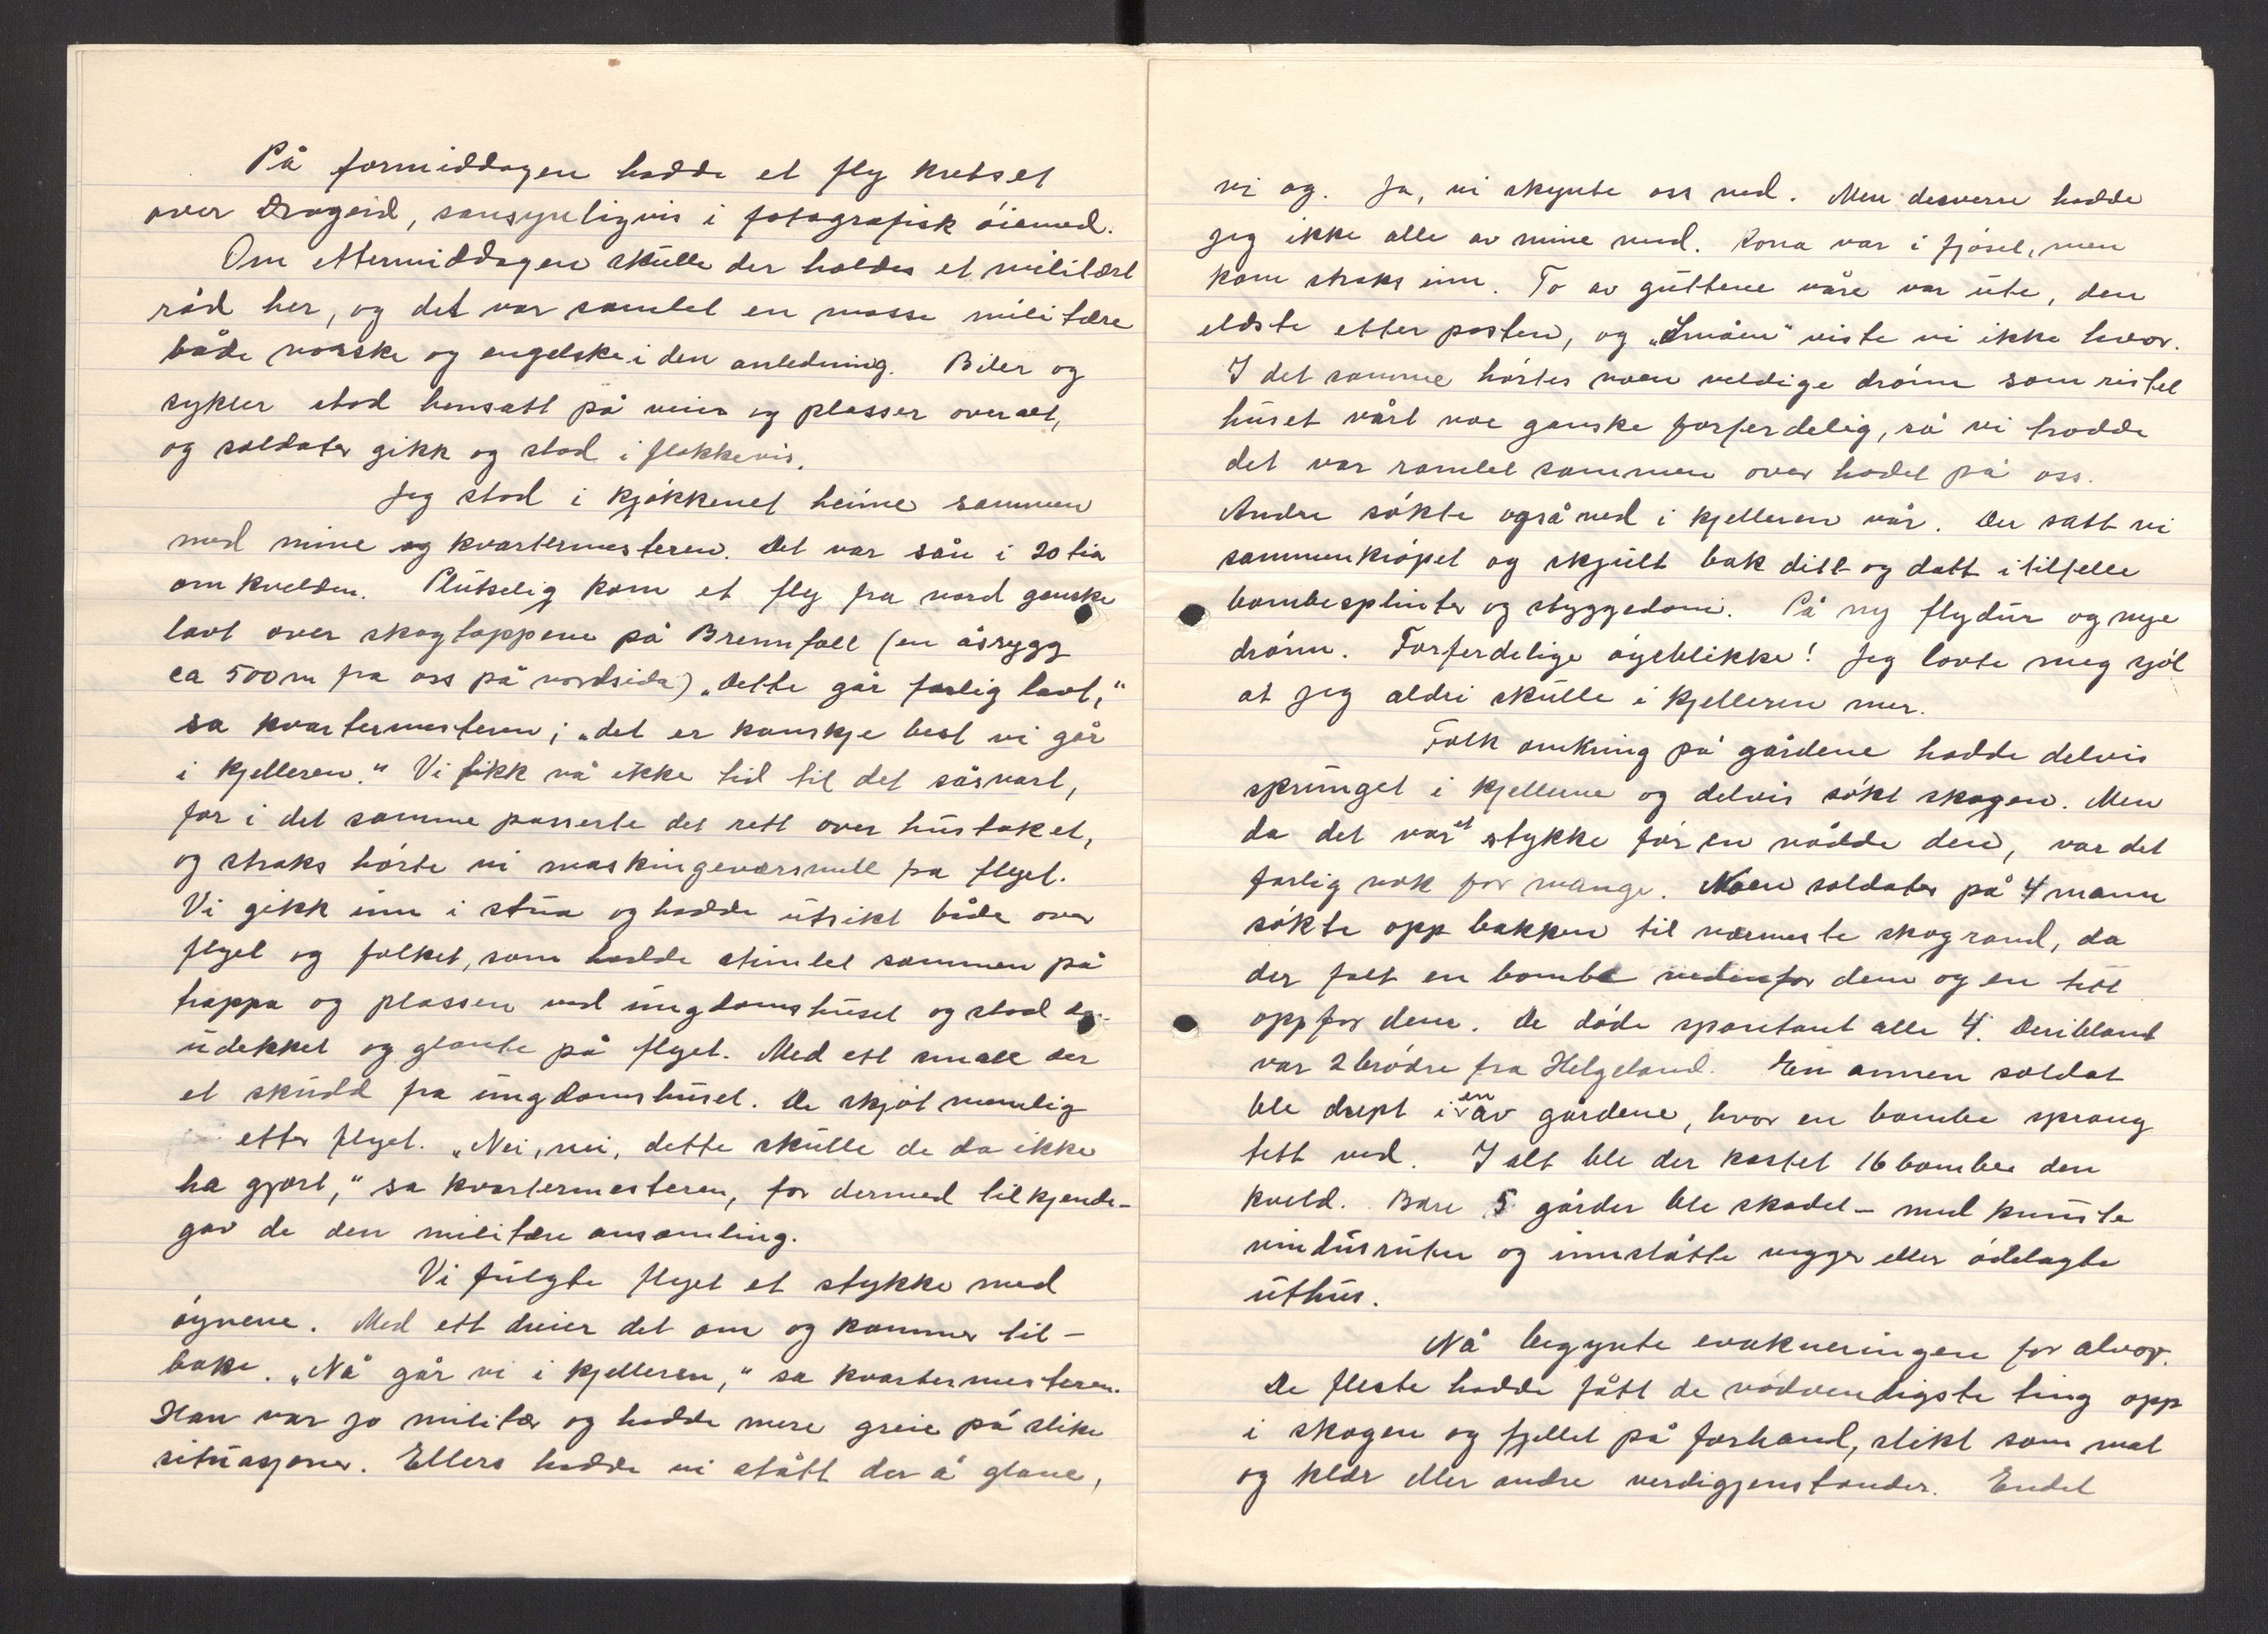 På formiddagen hadde et fly kretset
over Drageid, sansynligvis i fotografisk öiemed.
Om ettermiddagen skulle der holdes et militært
råd her, og det var samlet en masse militære
både norske og engelske i den anledning. Biler og
sykler stod hensatt på veier og plasser overalt,
og soldater gikk og stod i flokkevis.
Jeg stod i kjøkkenet heime sammen
med mine og kvartermesteren. Det var sån i 20 tia
om kvelden. Plutselig kom et fly fra nord ganske
lavt over skogtoppene på Brennfall (en åsrygg
ca 500 m fra oss på nordsida) „Dette går farlig lavt,"
sa kvartermesteren; „det er kanskje best vi går
i kjelleren." Vi fikk nå ikke tid til det såsnart,
for i det samme passerte det rett over hustaket,
og straks hørte vi maskingeværsmell fra flyet.
Vi gikk inn i stua og hadde utsikt både over
flyet og folket, som hadde stimlet sammen på
trappa og plassen ved ungdomshuset og stod der
udekket og glante på flyet. Med ett small der
et skudd fra ungdomshuset. De skjøt nemlig
etter flyet. „Nei, nei, dette skulle de da ikke
ha gjort," sa kvartermesteren, for dermed tilkjende-
gav de den militære ansamling.
Vi fulgte flyet et stykke med
øynene. Med ett dreier det om og kommer til-
bake. „Nå går vi i kjelleren," sa kvartermesteren.
Han var jo militær og hadde mere greie på slike
situasjoner. Ellers hadde vi stått der å glane,
vi og. Ja, vi skynte oss ned. Men desverre hadde
jeg ikke alle av mine med. Kona var i fjøset, men
kom straks inn. To av guttene våre var ute, den
eldste etter posten, og „Småen" viste vi ikke hvor.
I det samme hørtes noen veldige drønn som ristet
huset vårt noe ganske forferdelig, så vi trodde
det var ramlet sammen over hodet på oss.
Andre søkte også ned i kjelleren vår. Der satt vi
sammenkrøpet og skjult bak ditt og datt i tilfelle
bombesplinter og styggedom. På ny flydur og nye
drønn. Forferdelige øyeblikke! Jeg lovte meg sjøl
at jeg aldri skulle i kjelleren mer.
Folk omkring på gårdene hadde delvis
sprunget i kjellerne og delvis søkt skogen. Men
da det var et stykke før en nådde den, var det
farlig nok for mange. Noen soldater på 4 mann
søkte opp bakken til nærmeste skogrand, da
der falt en bombe nedenfor dem og en tett
oppfor dem. De døde spontant alle 4. Deriblant
var 2 brødre fra Helgeland. En annen soldat
ble drept i en av gårdene, hvor en bombe sprang
tett ved. I alt ble der kastet 16 bomber den
kveld. Bare 5 gårder ble skadet – med knuste
vindusruter og innslåtte vegger eller ødelagte
uthus.
Nå begynte evakueringen for alvor.
De fleste hadde fått de nødvendigste ting opp
i skogen og fjellet på forhand, slikt som mat
og klær eller andre verdigjenstander. Endel